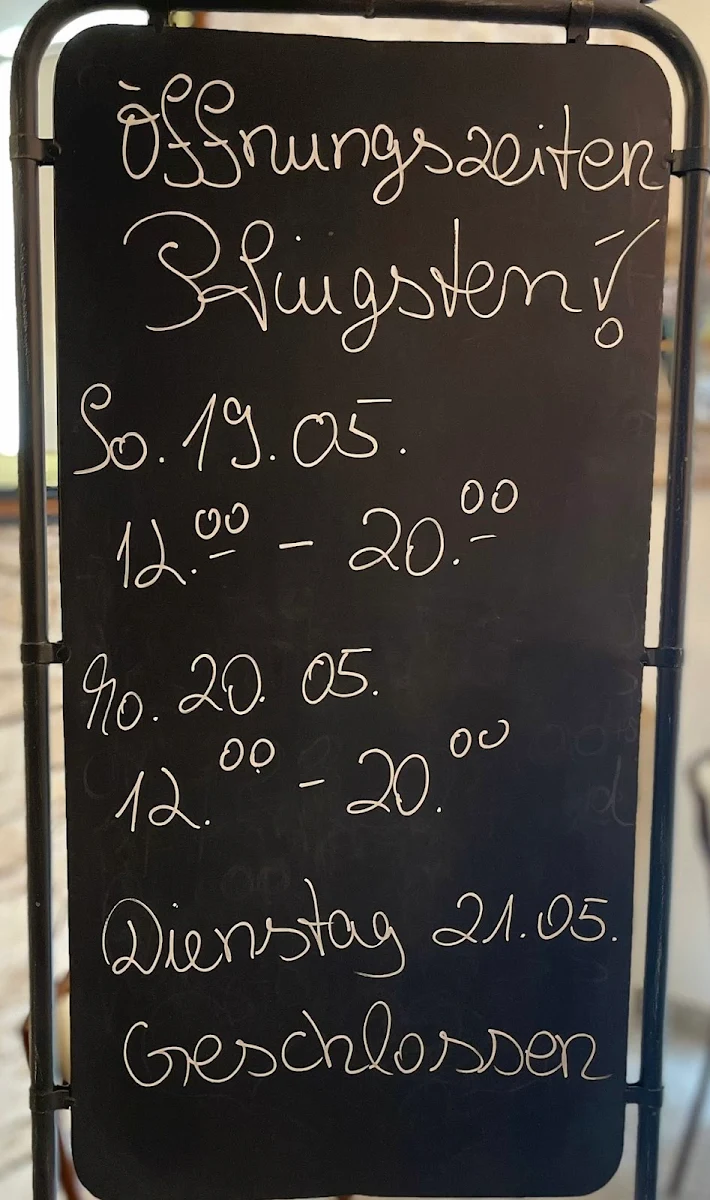 Öffnungszeiten
Pfingsten!
So. 19. 05.
12.00 - 20.00
Mo. 20. 05.
12.00 - 20.00
Dienstag 21.05.
Geschlossen